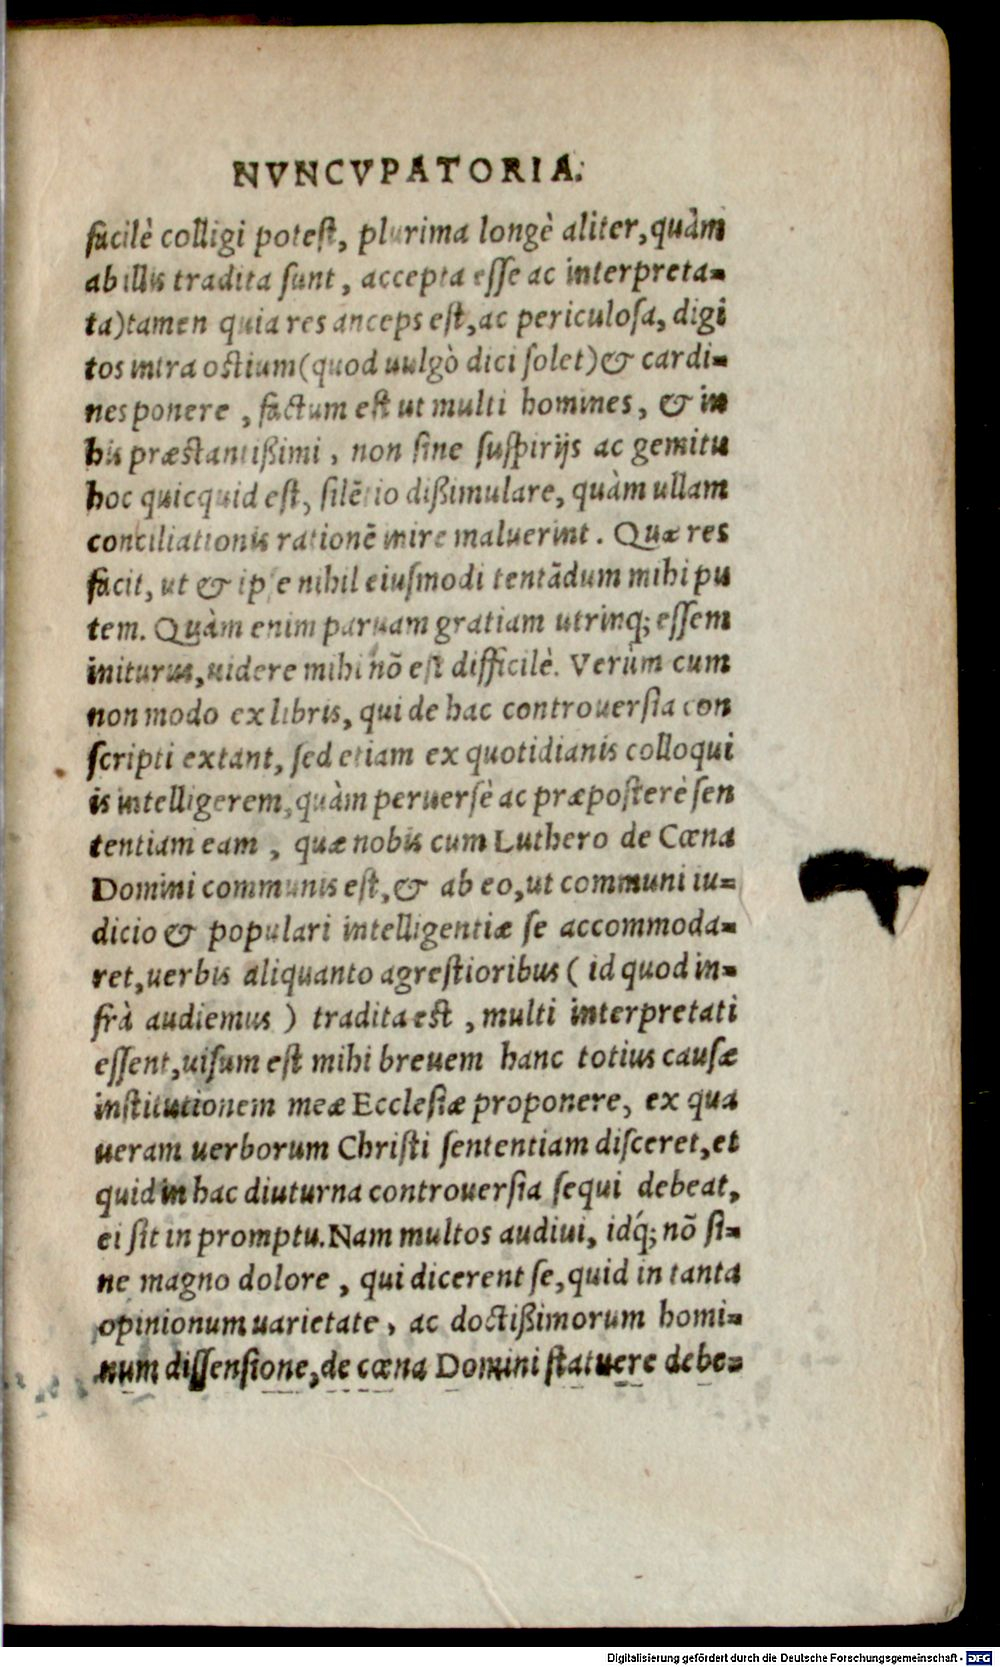 NVNCVPATORIA.
facilè colligi potest, plurima longè aliter, quàm
ab illis tradita sunt, accepta esse ac interpreta-
ta) tamen quia res anceps est, ac periculosa, digi
tos intra ostium (quod uulgò dici solet) & cardi-
nes ponere, factum est ut multi homines, & in
his præstantißimi, non sine suspirijs ac gemitu
hoc quicquid est, silẽtio dißimulare, quàm ullam
conciliationis rationẽ inire maluerint. Quæ res
facit, ut & ipse nihil eiusmodi tentãdum mihi pu
tem. Quàm enim paruam gratiam utrinq; essem
initurus, uidere mihi nõ est difficilè. Verùm cum
non modo ex libris, qui de hac controuersia con
scripti extant, sed etiam ex quotidianis colloqui
is intelligerem, quàm peruersè ac præposterè sen
tentiam eam, quæ nobis cum Luthero de Cœna
Domini communis est, & ab eo, ut communi iu-
dicio & populari intelligentiæ se accommoda-
ret, uerbis aliquanto agrestioribus ( id quod in-
frà audiemus ) tradita est, multi interpretati
essent, uisum est mihi breuem hanc totius causæ
institutionem meæ Ecclesiæ proponere, ex qua
ueram uerborum Christi sententiam disceret, et
quid in hac diuturna controuersia sequi debeat,
ei sit in promptu. Nam multos audiui, idq́; nõ si-
ne magno dolore, qui dicerent se, quid in tanta
opinionum uarietate, ac doctißimorum homi-
num dissensione, de cœna Domini statuere debe-
Digitalisierung gefördert durch die Deutsche Forschungsgemeinschaft - DFG